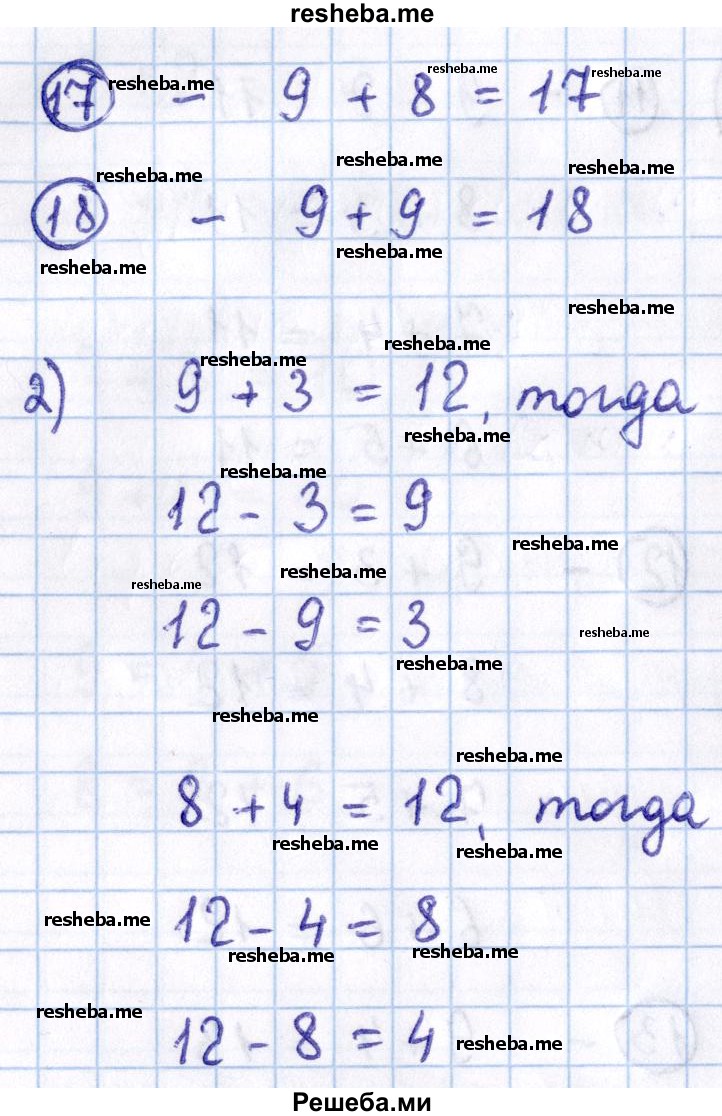 resheba.me
17 resheba.me - 9 + 8 = 17 resheba.me resheba.me
resheba.me resheba.me resheba.me
18 - 9 + 9 = 18
resheba.me resheba.me
resheba.me
resheba.me resheba.me
2) 9 + 3 = 12, тогда
resheba.me
resheba.me
12 - 3 = 9
resheba.me
resheba.me resheba.me
12 - 9 = 3 resheba.me
resheba.me
resheba.me
resheba.me
8 + 4 = 12, тогда
resheba.me resheba.me
resheba.me 12 - 4 = 8
resheba.me resheba.me
resheba.me
12 - 8 = 4 resheba.me
Решеба.ми